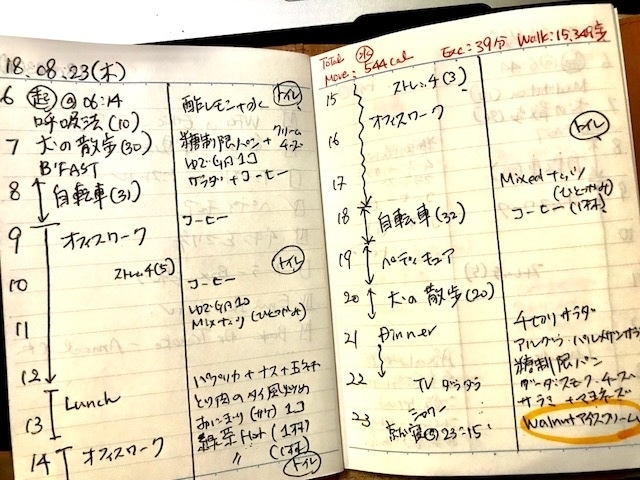 18.08.23(木)
6 起 @ 06:14 トイレ
酢レモン+水
呼吸法(10)
7 犬の散歩(30) 糖制限パン+クリームチーズ
B'FAST
サラダ+コーヒー
8 自転車(31)
コーヒー
9 オフィスワーク
ストレッチ(5) トイレ
10 コーヒー
11 Mixナッツ(ひとつかみ)
12 パプリカ+ナス+玉ネギ
Lunch とり肉のタイ風炒め
13 おにぎり(サケ) 1コ
緑茶Hot(1杯)
14 オフィスワーク 〃 (1杯)
トイレ
Total 水
Move: 544cal Exc: 39分 Walk: 15,348歩
15 ストレッチ(3)
オフィスワーク
16 トイレ
17 Mixedナッツ
(ひとつかみ)
18 自転車(32) コーヒー(1杯)
19 ペディキュア
20 犬の散歩(20)
21 Dinner チキンサラダ
パルメザンサラダ
糖制限パン
22 TV ダラダラ スモークチーズ
サラミ+マヨネーズ
23 シャワー Walnutアイスクリーム
23:15